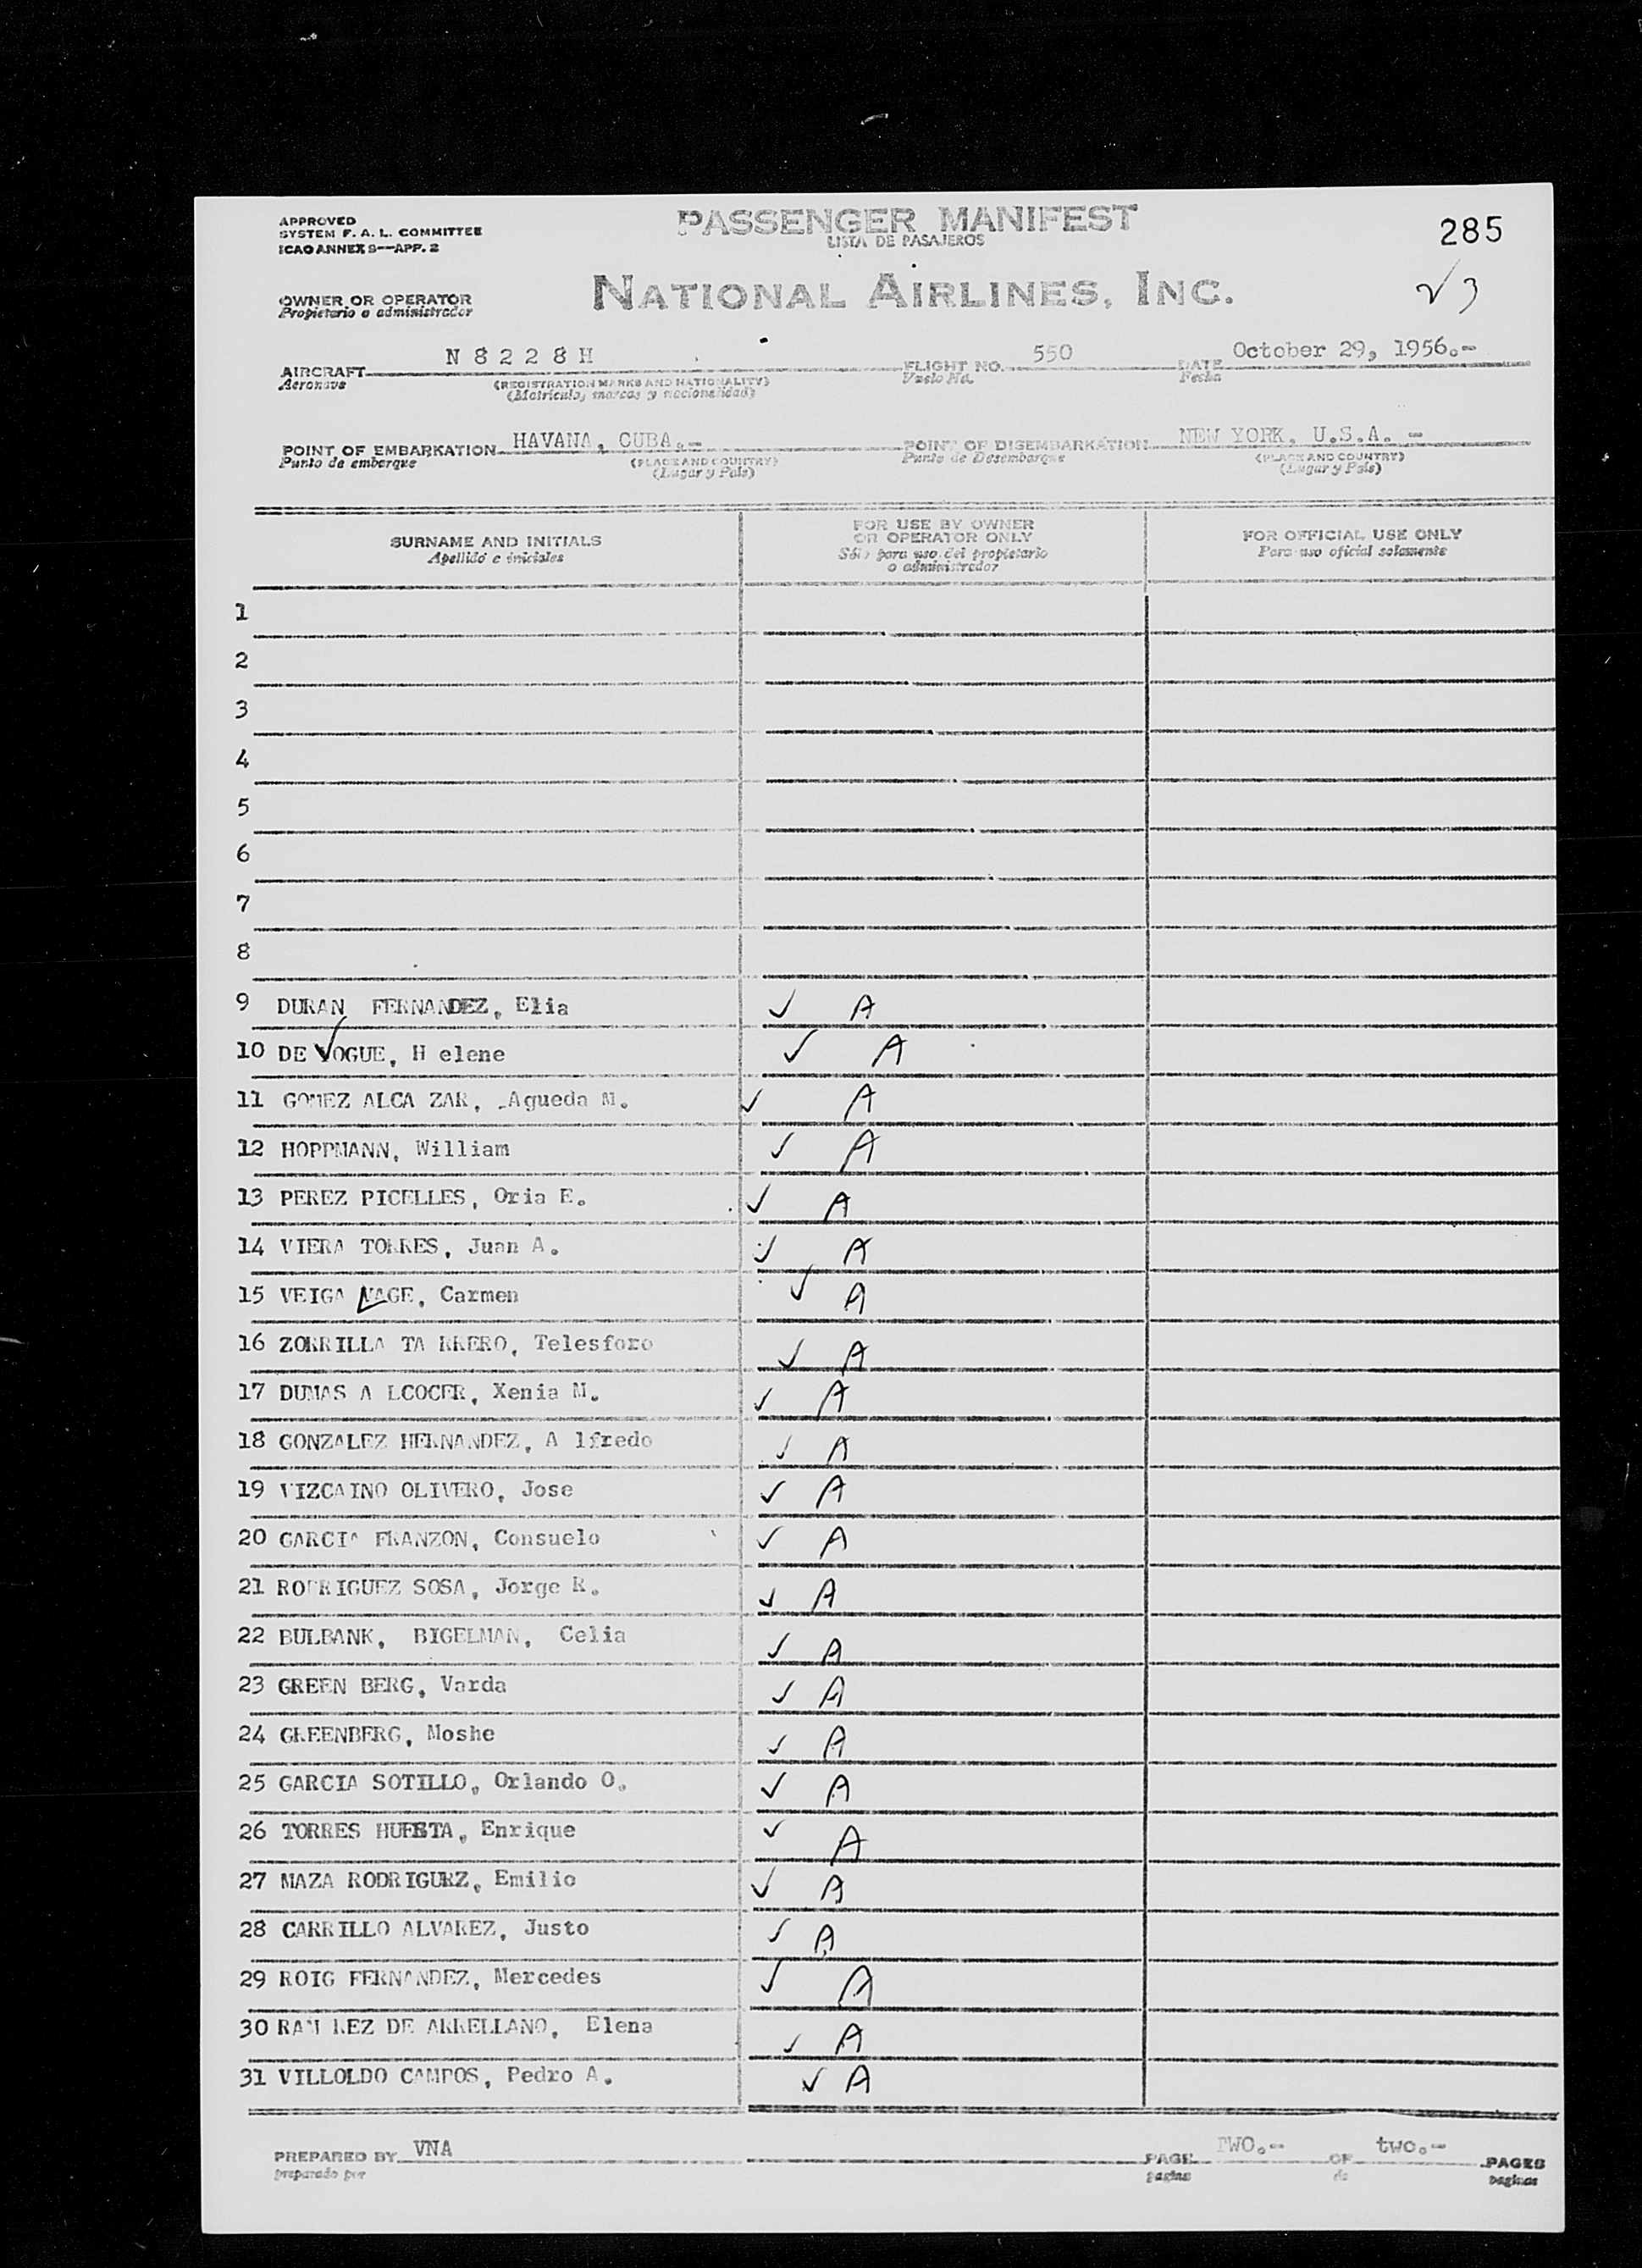 APPROVED
SYSTEM F. A. L. COMMITTEE
ICAO ANNEX 9—APP. 2
PASSENGER MANIFEST
LISTA DE PASAJEROS
285
OWNER OR OPERATOR
Propietario o administrador
NATIONAL AIRLINES, INC.
√3
AIRCRAFT N 8 2 2 8 H FLIGHT NO. 550 DATE October 29, 1956.-
Aeronave (REGISTRATION MARKS AND NATIONALITY) Vuelo No. Fecha
(Matricula, marcas y nacionalidad)
POINT OF EMBARKATION HAVANA, CUBA.- POINT OF DISEMBARKATION NEW YORK, U.S.A. -
Punto de embarque (PLACE AND COUNTRY) Punto de Desembarque (PLACE AND COUNTRY)
(Lugar y País) (Lugar y País)
SURNAME AND INITIALS
Apellido e iniciales
FOR USE BY OWNER
OR OPERATOR ONLY
Sólo para uso del propietario
o administrador
FOR OFFICIAL USE ONLY
Para uso oficial solamente
1
2
3
4
5
6
7
8
9 DURAN FERNANDEZ, Elia ✓ A
10 DE VOGUE, H elene ✓ A
11 GOMEZ ALCA ZAR, Agueda M. ✓ A
12 HOPPMANN, William ✓ A
13 PEREZ PICELLES, Oria E. ✓ A
14 VIERA TORRES, Juan A. ✓ A
15 VEIGA VAGE, Carmen ✓ A
16 ZORRILLA TA RRERO, Telesforo ✓ A
17 DUMAS A LCOCER, Xenia M. ✓ A
18 GONZALEZ HERNANDEZ, A lfredo ✓ A
19 VIZCAINO OLIVERO, Jose ✓ A
20 GARCIA FRANZON, Consuelo ✓ A
21 RODRIGUEZ SOSA, Jorge R. ✓ A
22 BULBANK, BIGELMAN, Celia ✓ A
23 GREEN BERG, Varda ✓ A
24 GREENBERG, Moshe ✓ A
25 GARCIA SOTILLO, Orlando O. ✓ A
26 TORRES HUESTA, Enrique ✓ A
27 MAZA RODRIGURZ, Emilio ✓ A
28 CARRILLO ALVAREZ, Justo ✓ A
29 ROIG FERNANDEZ, Mercedes ✓ A
30 RAMI REZ DE ARRELLANO, Elena ✓ A
31 VILLOLDO CAMPOS, Pedro A. ✓ A
PREPARED BY VNA PAGE TWO.- OF two.- PAGES
preparado por pagina de paginas